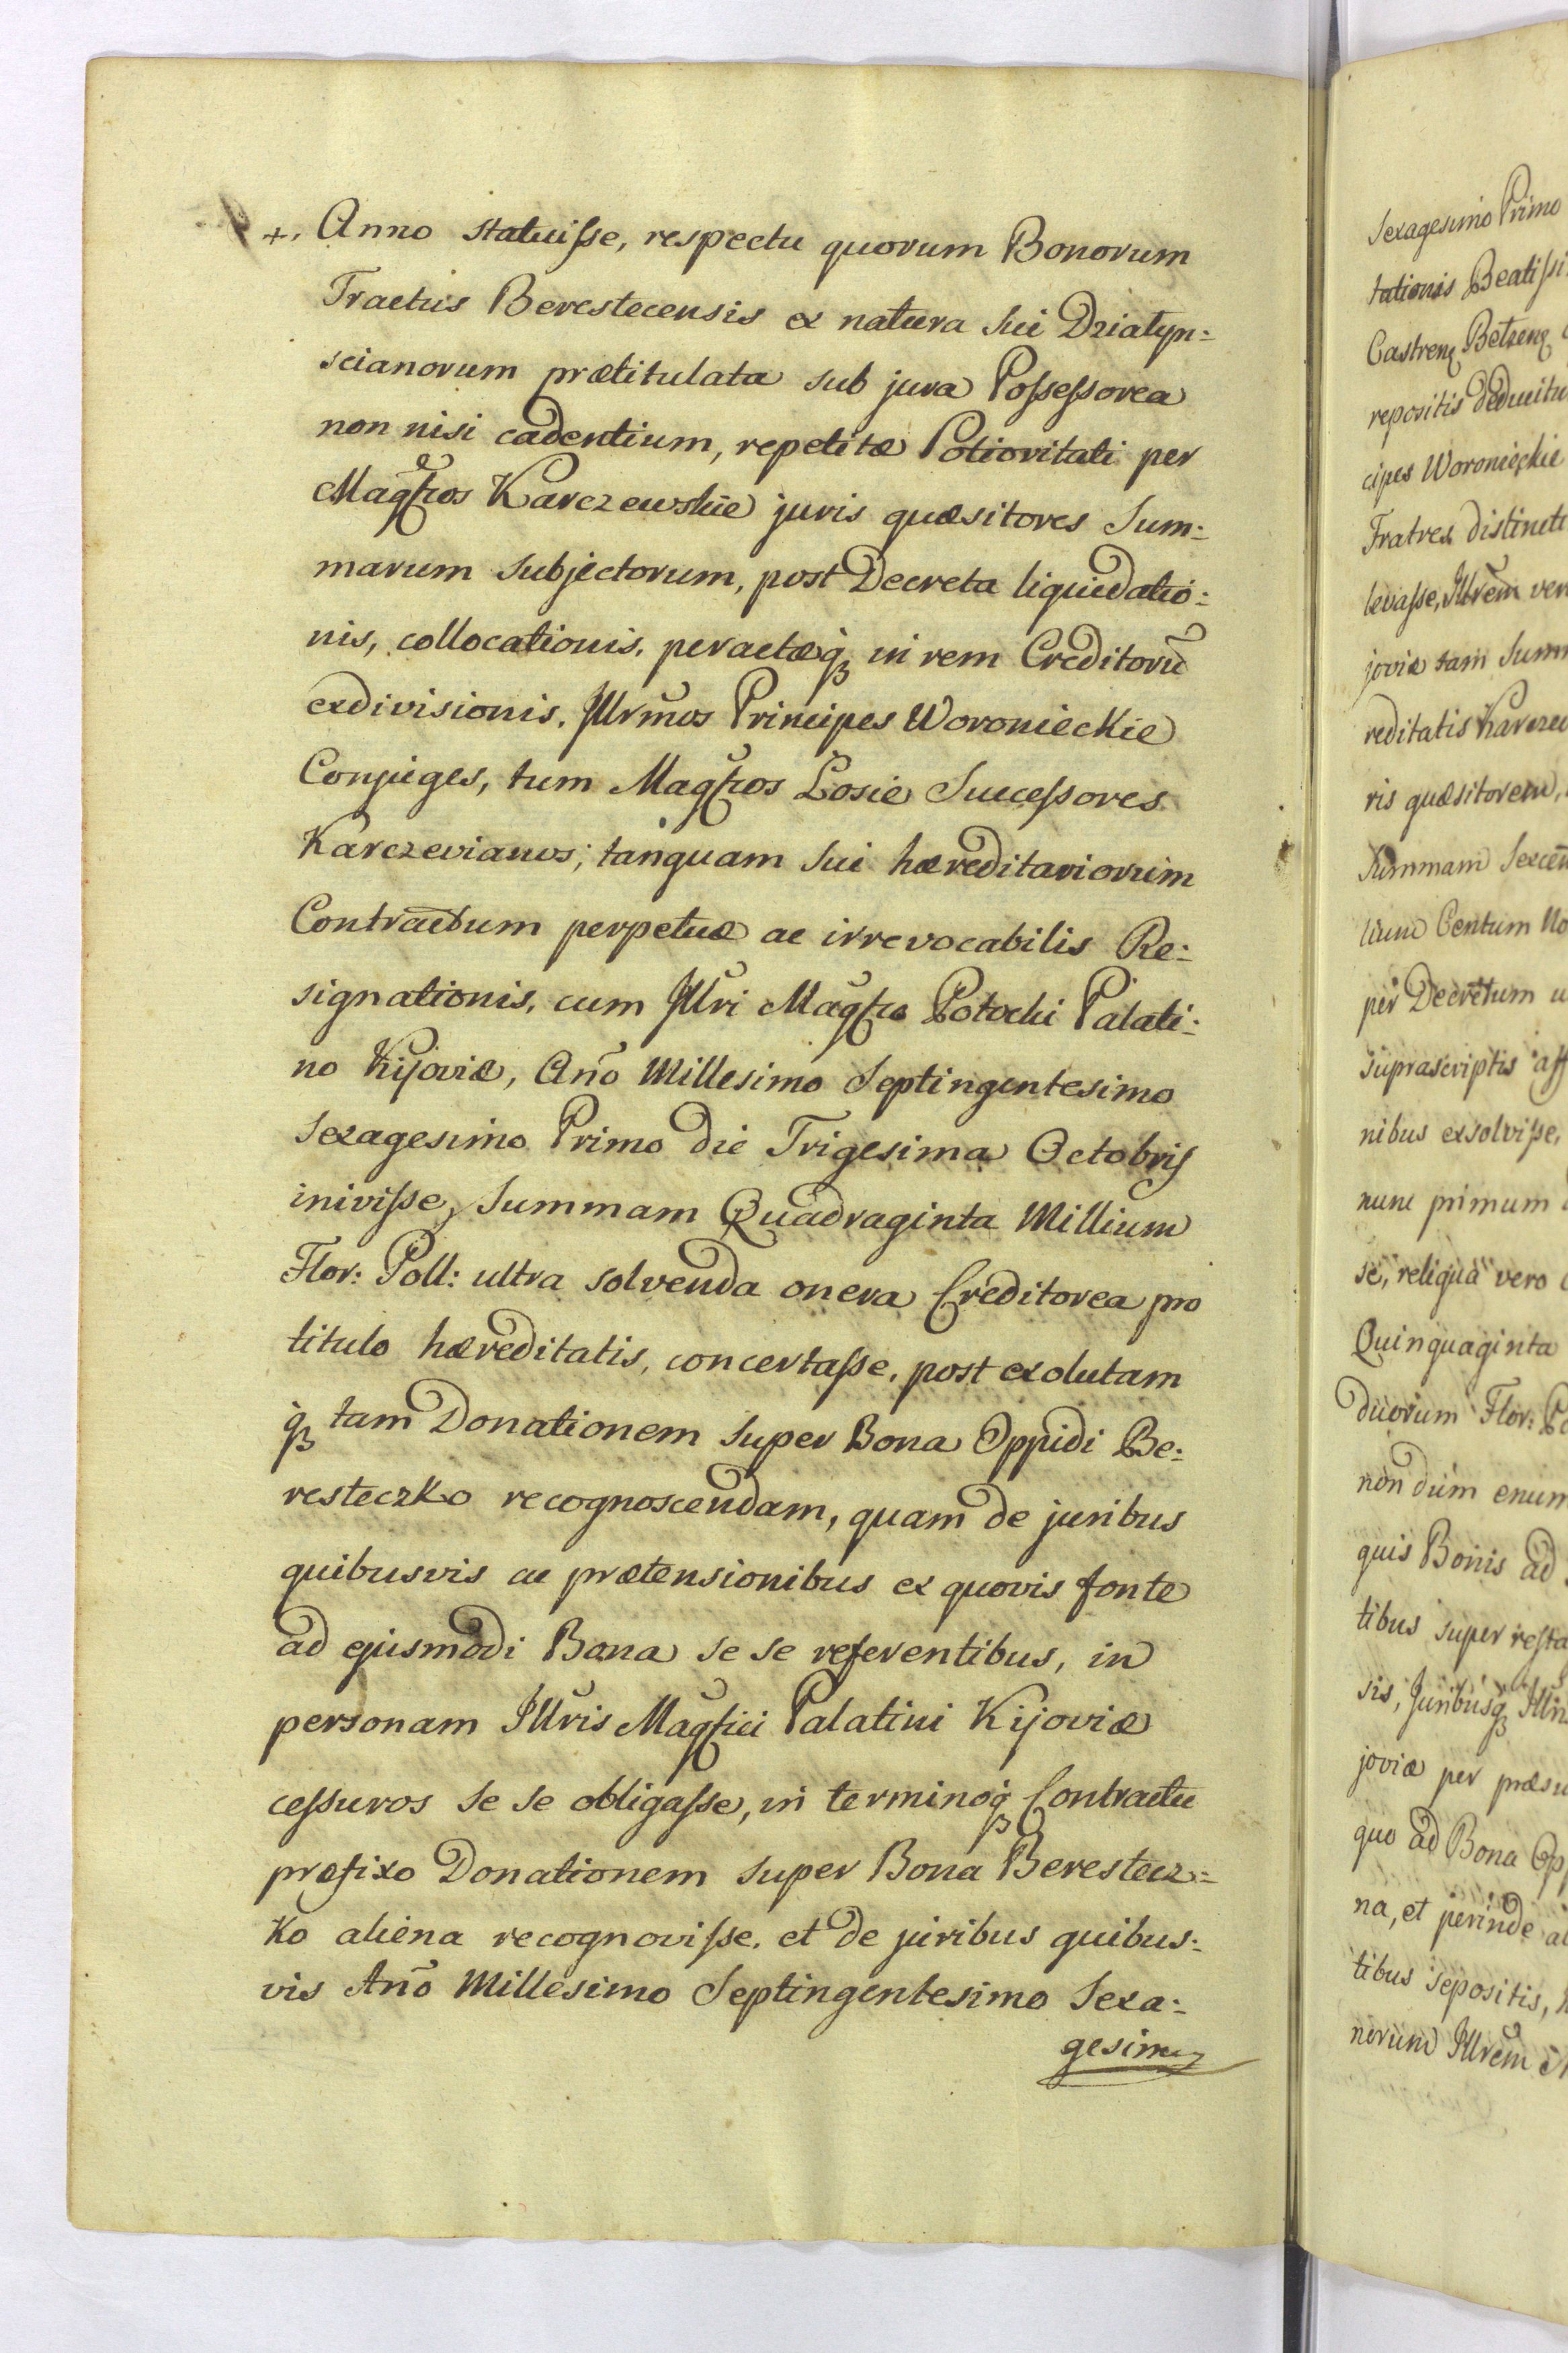 +. Anno statuisse, respectu quorum Bonorum
Tractus Berestecensis ex natura sui Dziatyn:
scianorum prætitulata sub jura Possessorea
non nisi cadentium, repetitæ Potioritati per
Magficos Karczewskie juris quæsitores Sum:
marum subjectorum, post Decreta liquidatio:
nis, collocationis, peractæq3 in rem Creditorū
exdivisionis, Jllrmos Principes Woronieckie
Conjuges, tum Magficos Łosie Successores
Karczevianos, tanquam sui hæreditariorum
Contractum perpetuæ ac irrevocabilis Re:
signationis, cum Jllri Magfco Potocki Palati:
no Kijoviæ, Año Millesimo Septingentesimo
Sexagesimo Primo die Trigesima Octobris
inivisse, Summam Quadraginta Millium
Flor: Poll: ultra solvenda onera Creditorea pro
titulo hæreditatis, concertasse, post exolutam
q3 tam Donationem super Bona Oppidi Be:
resteczko recognoscendam, quam de juribus
quibusvis ac prætensionibus ex quovis fonte
ad ejusmodi Bona se se referentibus, in
personam Jllris Magfici Palatini Kijoviæ
cessuros se se obligasse, in terminoq3 Contractu
præfixo Donationem super Bona Berestecz:
ko aliena recognovisse, et de juribus quibus:
vis Año Millesimo Septingentesimo Sexa:
gesimo
Sexagesimo Primo
tationis Beatissi
Castren Betzen
repositis deducitu
cipes Woronieckie
Fratres distincte
levasse, Jllrem ver
joviæ tam Summ
reditatis Karczew
ris quæsitorem,
Summam Sexcen
lium Centum No
per Decretum u
suprascriptis aff
nibus exsolvisse,
nunc primum
se, reliqua vero
Quinquaginta
duorum Flor: Po
non dum enum
quis Bonis ad
tibus super resta
sis, Juribusq3 Jllri
joviæ per præsu
quo ad Bona Opp
na, et perinde al
tibus sepositis,
norum Jllrem M